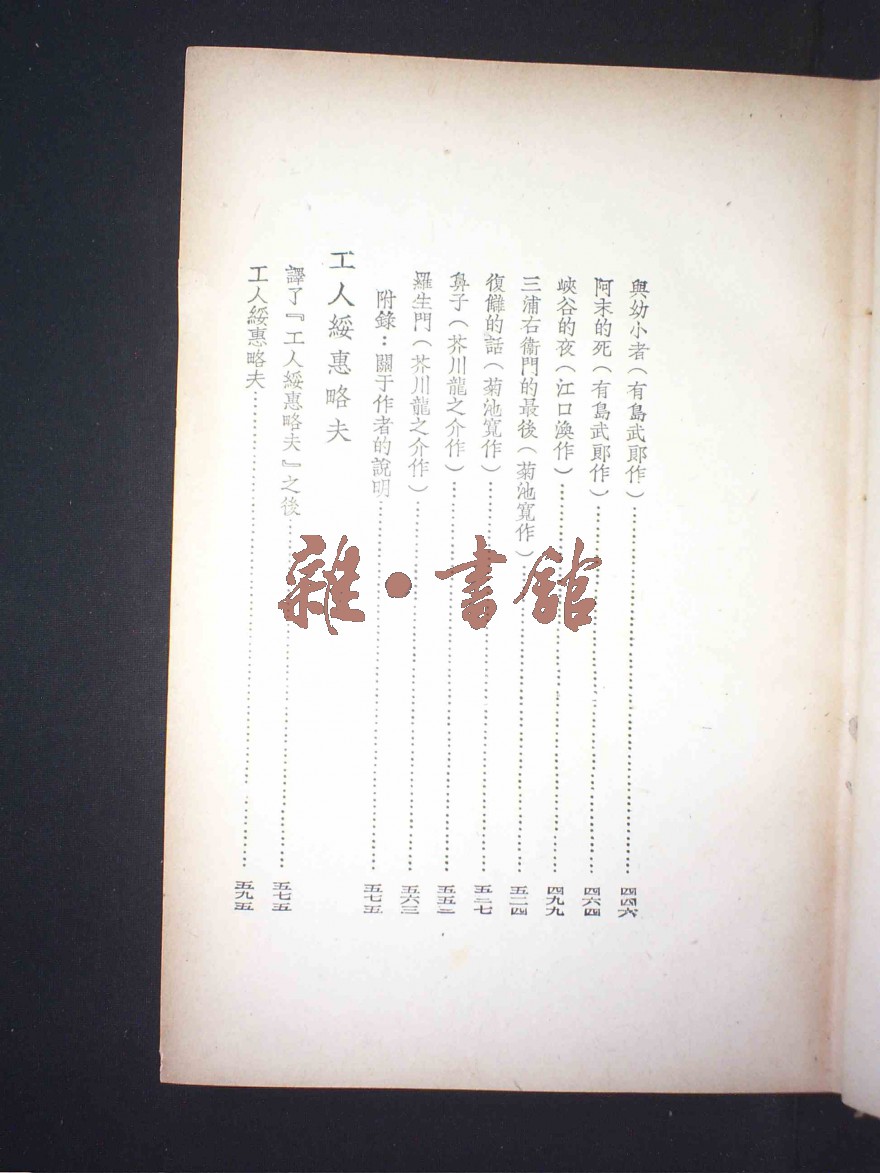 與幼小者(有島武郎作)……四四六
阿末的死(有島武郎作)……四六四
峽谷的夜(江口渙作)……四九九
三浦右衞門的最後(菊池寬作)……五二四
復讎的話(菊池寬作)……五二七
鼻子(芥川龍之介作)……五五二
羅生門(芥川龍之介作)……五六三
附錄:關于作者的說明……五七五
工人綏惠略夫
譯了『工人綏惠略夫』之後……五七五
工人綏惠略夫……五九五
雜·書館